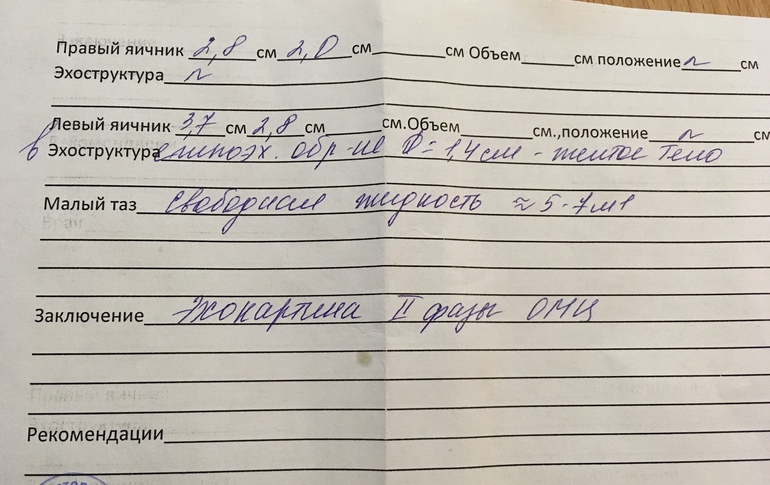 Правый яичник 2,8 см 2,0 см ______ см Объем ______ см положение N см
Эхоструктура N
Левый яичник 3,7 см 2,8 см ______ см.Объем ______ см.,положение N см
в Эхоструктура гипоэх. обр-ие D = 1,4 см - желтое тело
Малый таз свободная жидкость ≈ 5-7 мл
Заключение Эхокартина II фазы ОМЦ
Рекомендации